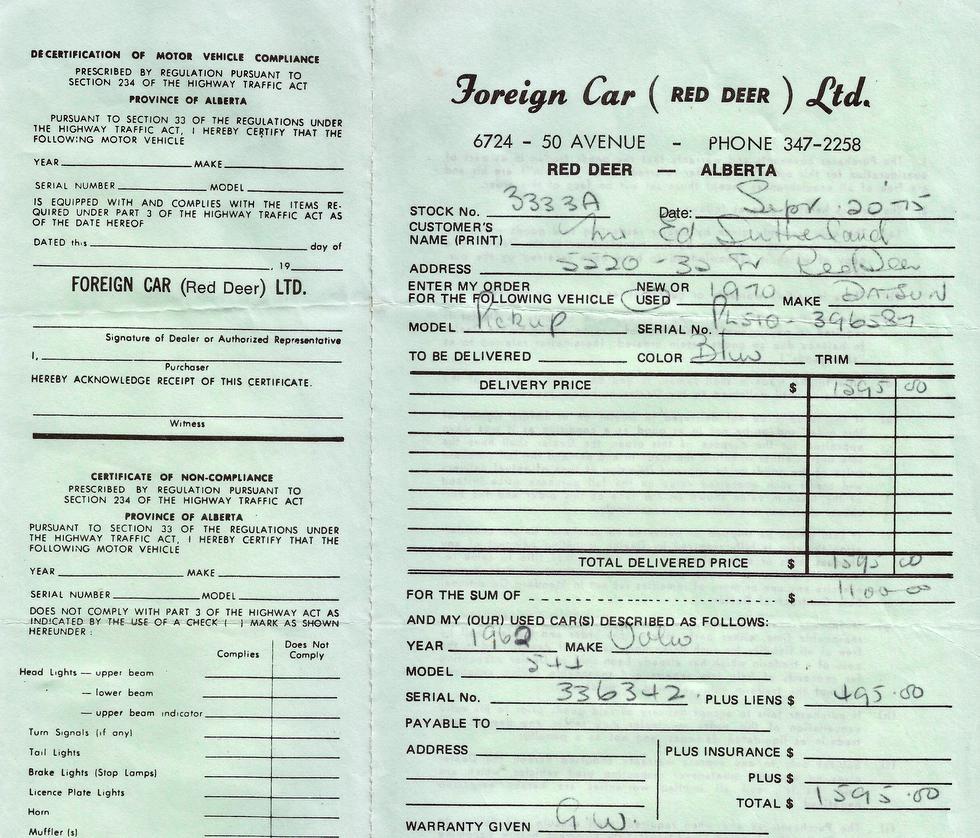 DECERTIFICATION OF MOTOR VEHICLE COMPLIANCE
PRESCRIBED BY REGULATION PURSUANT TO
SECTION 234 OF THE HIGHWAY TRAFFIC ACT
PROVINCE OF ALBERTA
PURSUANT TO SECTION 33 OF THE REGULATIONS UNDER
THE HIGHWAY TRAFFIC ACT, I HEREBY CERTIFY THAT THE
FOLLOWING MOTOR VEHICLE
YEAR MAKE
SERIAL NUMBER MODEL
IS EQUIPPED WITH AND COMPLIES WITH THE ITEMS RE-
QUIRED UNDER PART 3 OF THE HIGHWAY TRAFFIC ACT AS
OF THE DATE HEREOF
DATED this day of
, 19
FOREIGN CAR (Red Deer) LTD.
Signature of Dealer or Authorized Representative
I,
Purchaser
HEREBY ACKNOWLEDGE RECEIPT OF THIS CERTIFICATE.
Witness
CERTIFICATE OF NON-COMPLIANCE
PRESCRIBED BY REGULATION PURSUANT TO
SECTION 234 OF THE HIGHWAY TRAFFIC ACT
PROVINCE OF ALBERTA
PURSUANT TO SECTION 33 OF THE REGULATIONS UNDER
THE HIGHWAY TRAFFIC ACT, I HEREBY CERTIFY THAT THE
FOLLOWING MOTOR VEHICLE
YEAR MAKE
SERIAL NUMBER MODEL
DOES NOT COMPLY WITH PART 3 OF THE HIGHWAY ACT AS
INDICATED BY THE USE OF A CHECK ( ) MARK AS SHOWN
HEREUNDER :
Complies Does Not Comply
Head Lights — upper beam
— lower beam
— upper beam indicator
Turn Signals (if any)
Tail Lights
Brake Lights (Stop Lamps)
Licence Plate Lights
Horn
Muffler (s)
Foreign Car ( RED DEER ) Ltd.
6724 - 50 AVENUE - PHONE 347-2258
RED DEER — ALBERTA
STOCK No. 3333A Date: Sept. 20-75
CUSTOMER'S
NAME (PRINT) Mr Ed Sutherland
ADDRESS 5520 - 35 Red Deer
ENTER MY ORDER NEW OR
FOR THE FOLLOWING VEHICLE USED 1970 MAKE DATSUN
MODEL Pickup SERIAL No. PL510-396587
TO BE DELIVERED COLOR Blue TRIM
DELIVERY PRICE $ 1595 00
TOTAL DELIVERED PRICE $ 1595 00
FOR THE SUM OF $ 1100 00
AND MY (OUR) USED CAR(S) DESCRIBED AS FOLLOWS:
YEAR 1962 MAKE Volvo
MODEL 544
SERIAL No. 336342 PLUS LIENS $ 495.00
PAYABLE TO
ADDRESS PLUS INSURANCE $
PLUS $
TOTAL $ 1595.00
WARRANTY GIVEN G.W.